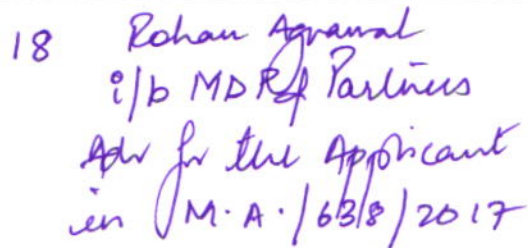 18 Rohan Agrawal
i/b MDR & Partners
Adv for the Applicant
in M.A./638/2017